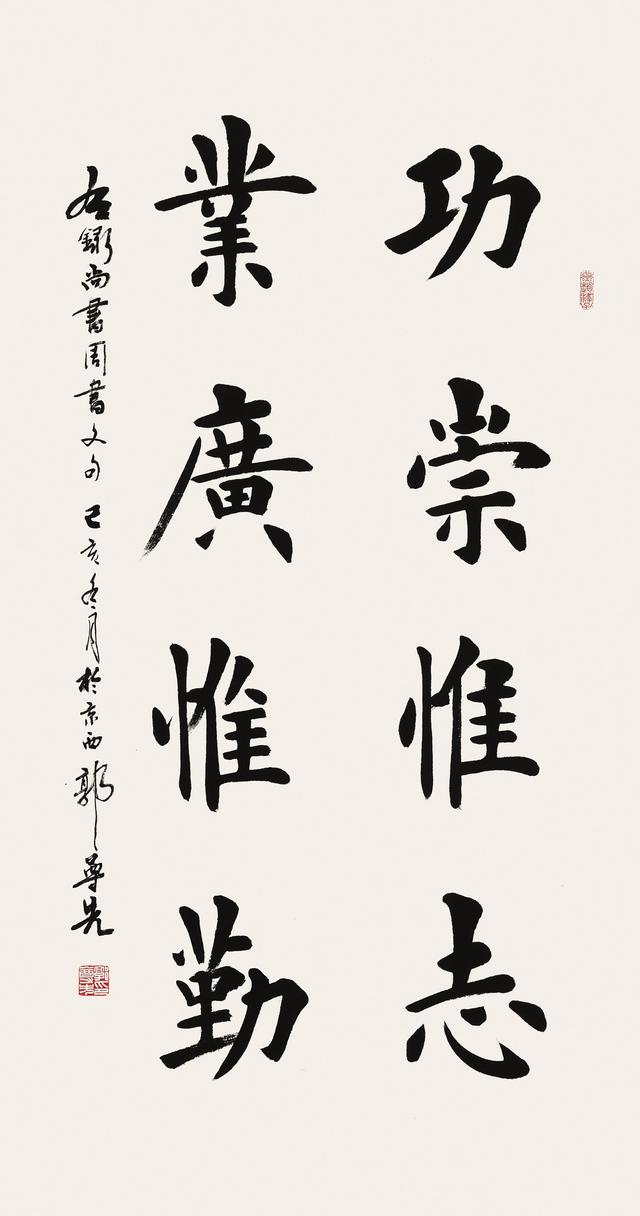 功崇惟志
業廣惟勤
右錄尚書周書文句己亥冬月於京西郭尊先